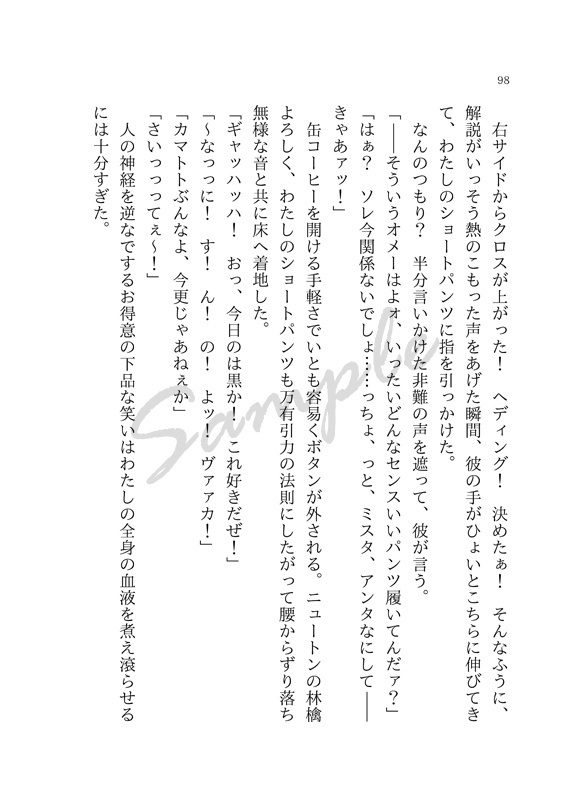 98
　右サイドからクロスが上がった！　ヘディング！　決めたぁ！　そんなふうに、
解説がいっそう熱のこもった声をあげた瞬間、彼の手がひょいとこちらに伸びてき
て、わたしのショートパンツに指を引っかけた。
　なんのつもり？　半分言いかけた非難の声を遮って、彼が言う。
「――そういうオメーはよォ、いったいどんなセンスいいパンツ履いてんだァ？」
「はぁ？　ソレ今関係ないでしょ……っちょ、っと、ミスタ、アンタなにして――
きゃあァッ！」
　缶コーヒーを開ける手軽さでいとも容易くボタンが外される。ニュートンの林檎
よろしく、わたしのショートパンツも万有引力の法則にしたがって腰からずり落ち
無様な音と共に床へ着地した。
「ギャッハッハ！　おっ、今日のは黒か！　これ好きだぜ！」
「～なっっに！　す！　ん！　の！　よッ！　ヴァァカ！」
「カマトトぶんなよ、今更じゃあねぇか」
「さいっっってぇ～！」
　人の神経を逆なでするお得意の下品な笑いはわたしの全身の血液を煮え滾らせる
には十分すぎた。
Sample